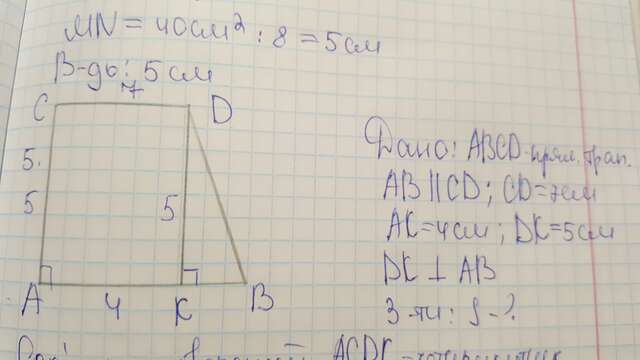 MN = 40см² : 8 = 5 см
В-дь: 5 см
7
C D
5.
5 5
A 4 K B
Дано: ABCD-прям. трап.
AB || CD; CD=7см
AK=4см; DK=5см
DK ⊥ AB
З-ти: S-?
ACDK